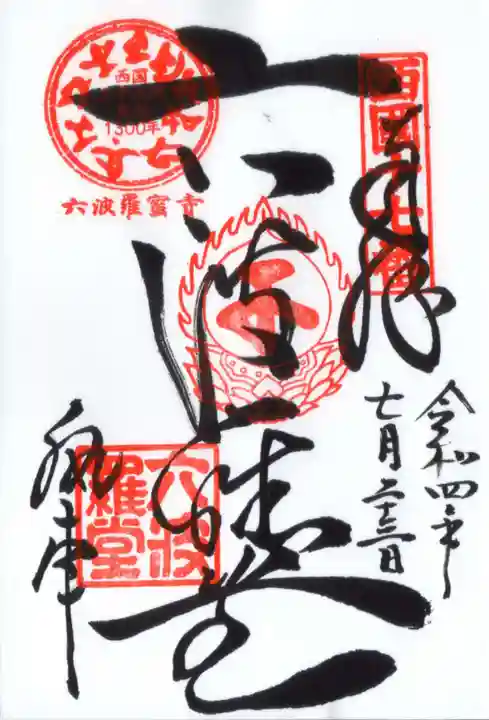 西國十七番
奉拝
令和四年
七月二十三日
六波羅堂
西国
1300年
六波羅蜜寺
六波
羅堂
執事